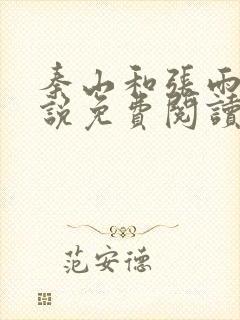 秦山和張雨
說免費閱讀
范安德